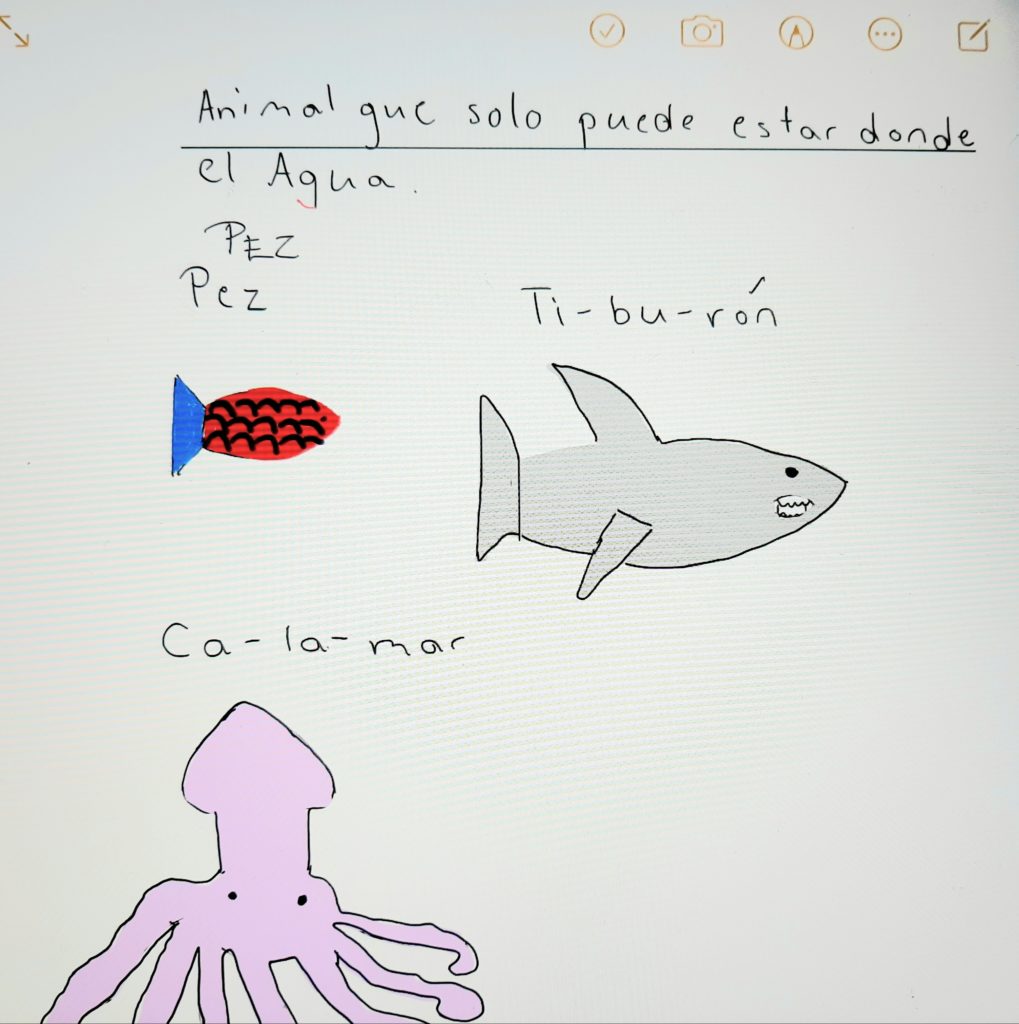 Animal que solo puede estar donde
el Agua.
PEZ
Pez
Ti-bu-rón
Ca-la-mar